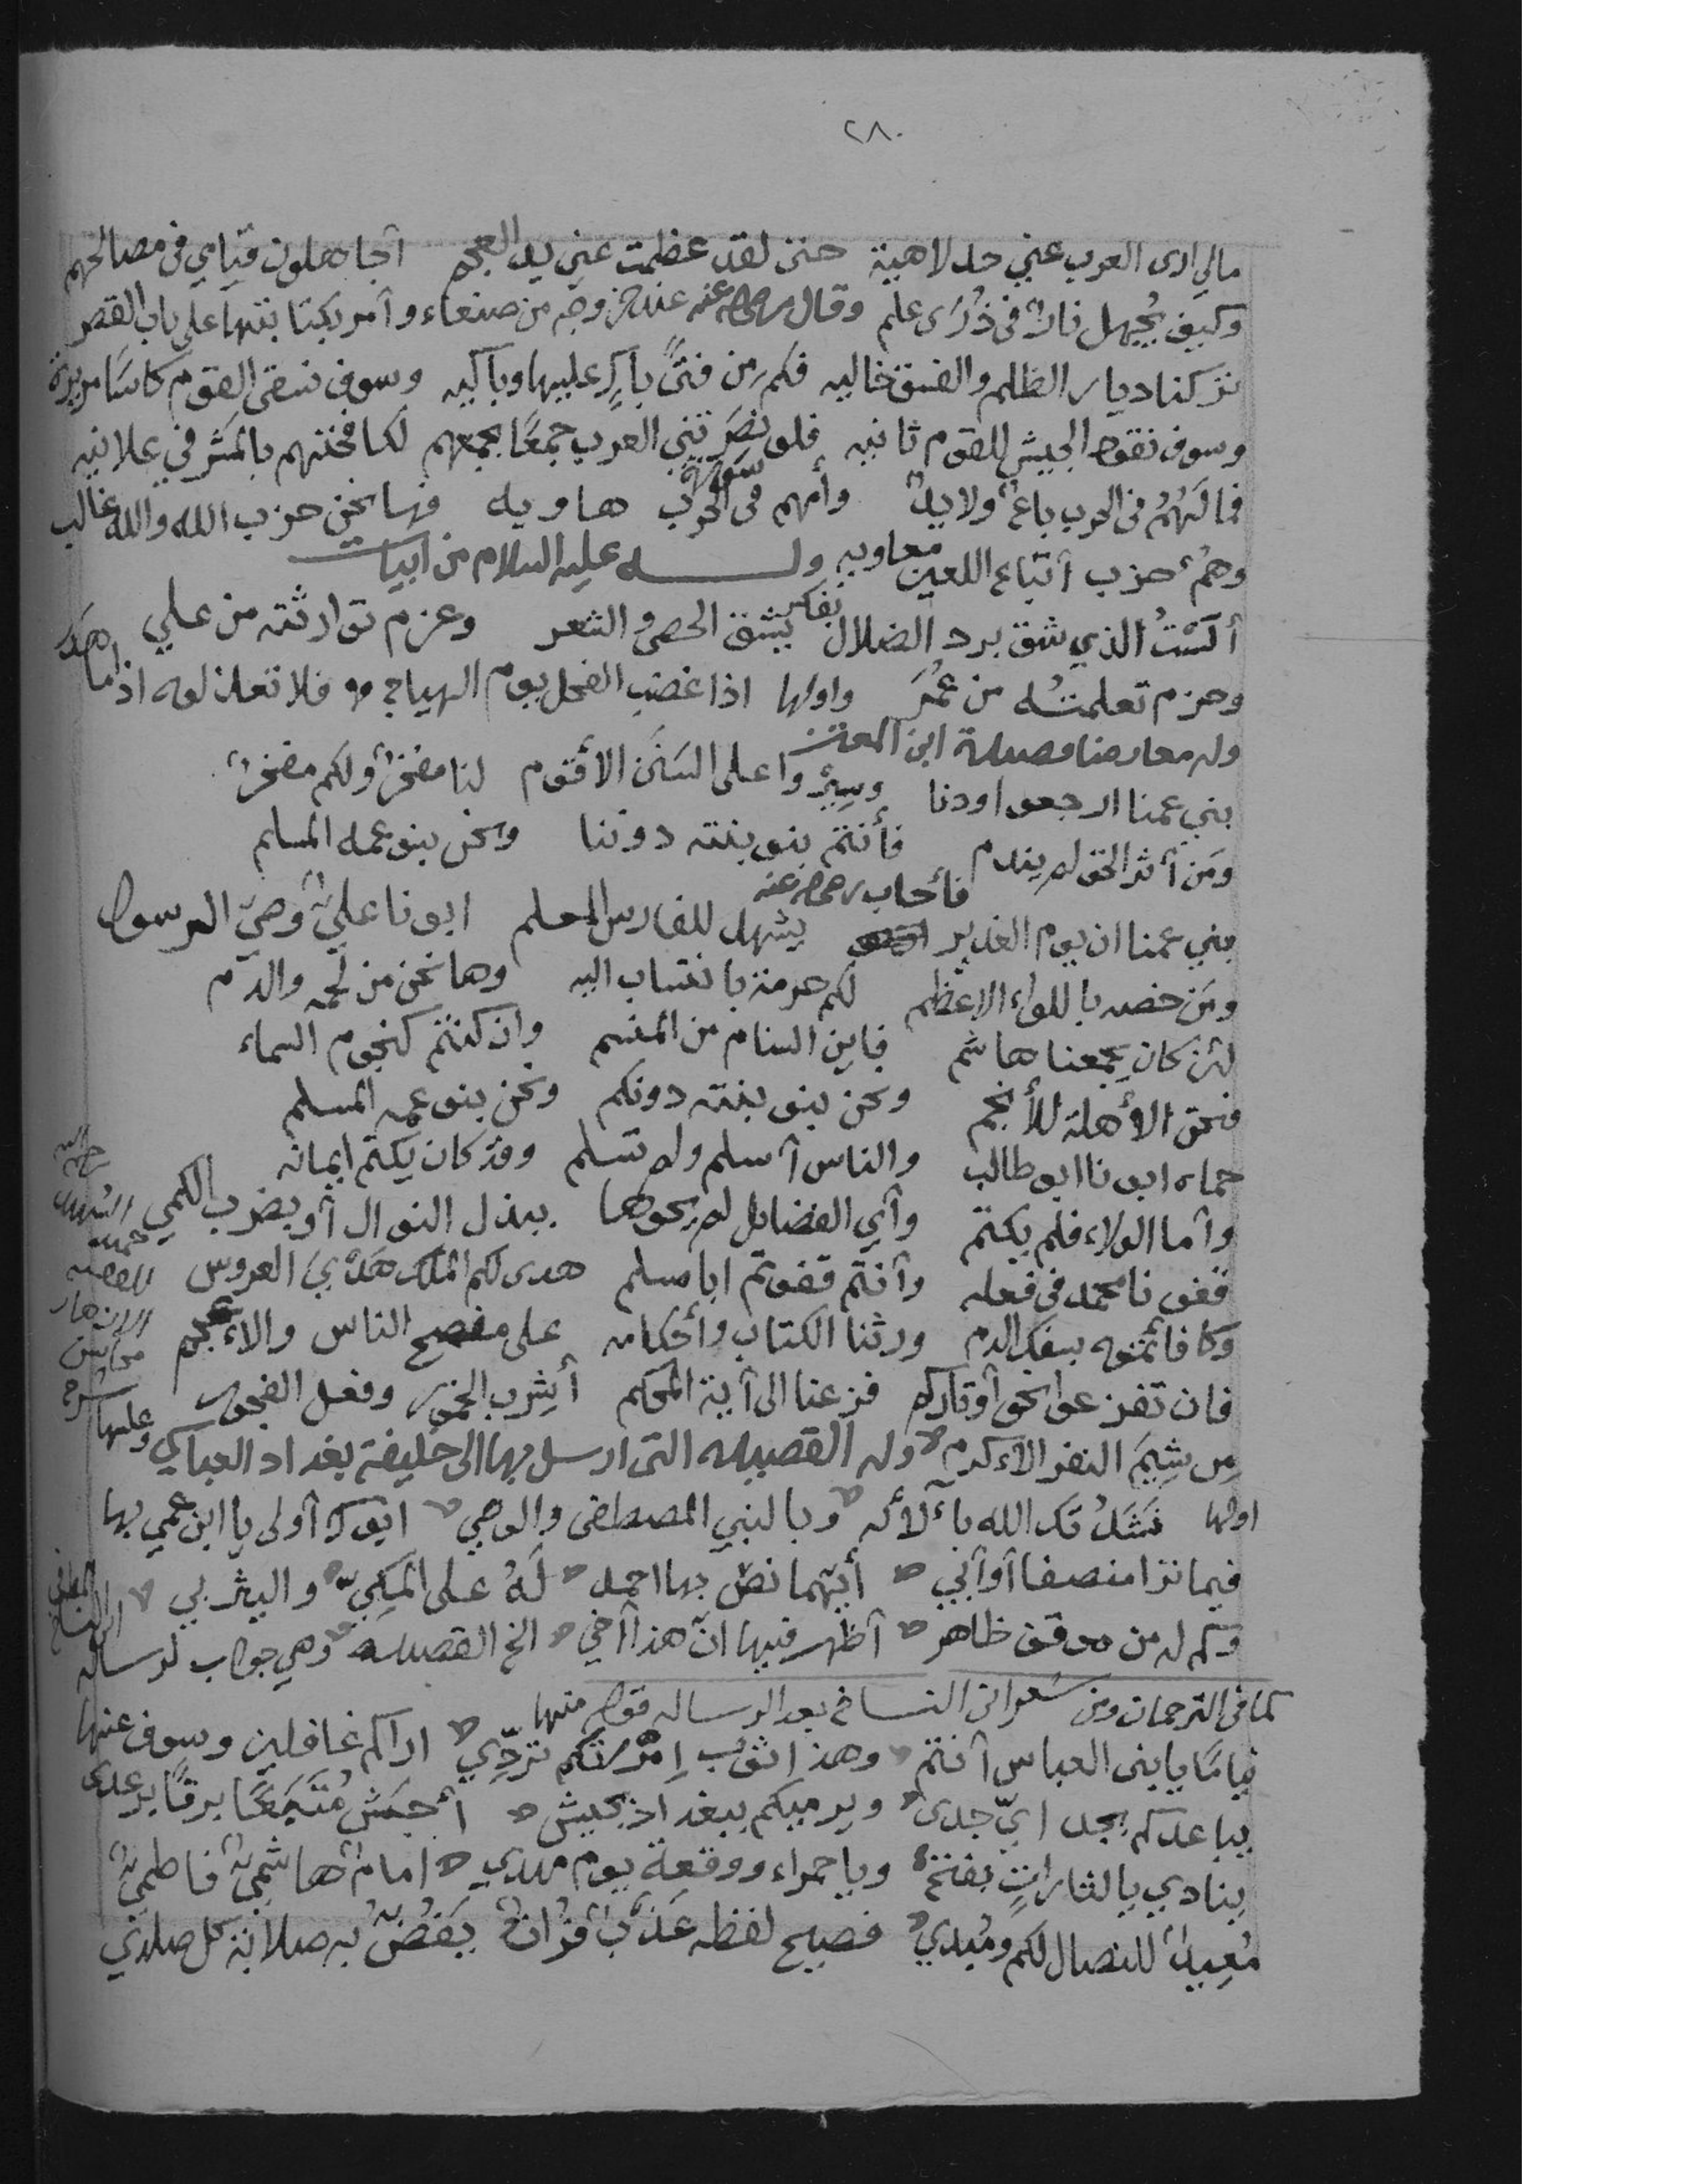 ٢٨٠
مالي ارى العرب عني جد لاهية حتى لقد عظمت عني يد العجم أجاهلون قيامي في مصالحهم
وكيف يُجهل نارٌ في ذُرَى علم وقال رضي الله عنه عند خروجه من صنعاء وأمر بكتابتها على باب القصر
تركنا ديار الظلم والفسق خاليه فكم من فتىً باكٍ عليها وباكيه وسوف نسقى القوم كاسًا مريرة
وسوف نقود الجيش للقوم ثانيه فلو نصَرَتني العرب جمعًا بجمعهم لكافحتهم بالمشرفي علانيه
فما لَهُمُ في الحرب باعٌ ولا يدٌ وأمهم في الحرب هاويه فها نحن حزب الله والله غالب
سورة
وهُمْ حزب أتباع اللعين معاويه وله عليه السلام من ابيات
ألَسْتُ الذي شق برد الضلال بفكر يشق الحصى والشعر وعزم توارثته من علي
وحزم تعلمتُه من عُمَر واولها اذا غضب الفحل يوم الهياج فلا تعذلوه اذا ما هدر
وله معارضا قصيدة ابن المعتز
بني عمنا ارجعوا ودنا وسِيْروا على السَنَن الأقوم لنا مفخرٌ ولكم مفخرٌ
ومَن آثر الحق لم يندم فأنتم بنو بنته دوننا ونحن بنو عمه المسلم
فأجاب رضي الله عنه
بني عمنا ان يوم الغدير يشهد للفارس المعلم ابونا عليٌ وصيّ الرسول
ومَن خصه باللواء الاعظم لكم حرمة بانتساب اليه وها نحن من لحمه والدّم
لئن كان يجمعنا هاشم فاين السنام من المنسم وان كنتم كنجوم السماء
فنحن الأهلة للأنجم ونحن بنو بنته دونكم ونحن بنو عمه المسلم
حماه ابونا ابو طالب والناس أسلم ولم تسلم وقد كان يكتم ايمانه
وأما الولاء فلم يكتم وأي الفضايل لم نحوها ببذل النوال أو بضرب الكمي
قفونا محمد في فعله وأنتم قفوتم ابا مسلم هدى لكم الملك هَدْيَ العروس
وكافأتموه بسفك الدم ورثنا الكتاب وأحكامه على مفصح الناس والاعجم
فان تفزعوا نحو أوتاركم فزعنا الى آية المحكم أشرب الخمور وفعل الفجور
مِن شِيَم النفر الأكرم وله القصيده التى ارسل بها الى خليفة بغداد العباسي وعليها شرح
اولها نَشَدْتك الله بآلائه وبالنبي المصطفى والوصي ابوك أولى يا ابن عمي بها
فيما ترا منصفا أو أبي أيّهما نصّ بها احمد لَهُ على المكيّ واليثربي
وكم له من موقف ظاهر أظهر فيها انّ هذا أخي الخ القصيده وهي جواب لرسالة
كما في الترجمان ومن شعر النساخ بعد الرساله قوله منها
قيامًا يا بني العباس أنتم وهذا ثوب إمْرَتكم تردّي اراكم غافلين وسوف عنها
يباعدكم بجد ايّ جدى ويرميكم ببغداد بجيش أجش مُتَجمعًا برقًا برعدى
ينادي بالثارات بفتح ويا حمراء ووقعة يوم مهدي امامٌ هاشميٌ فاطميٌ
مُعِيدٌ للنصال لكم ومُبدي فصيح لفظه عَذْبٌ فراتٌ يَفُضُّ به صلابة كل صلدي